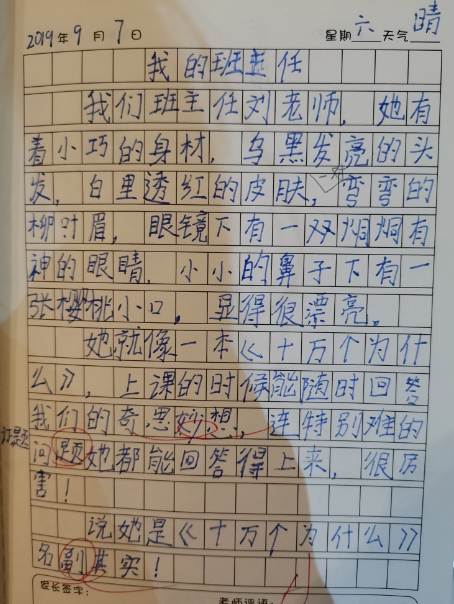 2019年9月7日 星期六 天气晴
我的班主任
我们班主任刘老师，她有
着小巧的身材，乌黑发亮的头
发，白里透红的皮肤，一双弯弯的
柳叶眉，眼镜下有一双炯炯有
神的眼睛，小小的鼻子下有一
张樱桃小口，显得很漂亮。
她就像一本《十万个为什
么》，上课的时候能随时回答
我们的奇思妙想，连特别难的
问题她都能回答得上来，很厉
害！
说她是《十万个为什么》
名副其实！
家长签字： 老师评语：